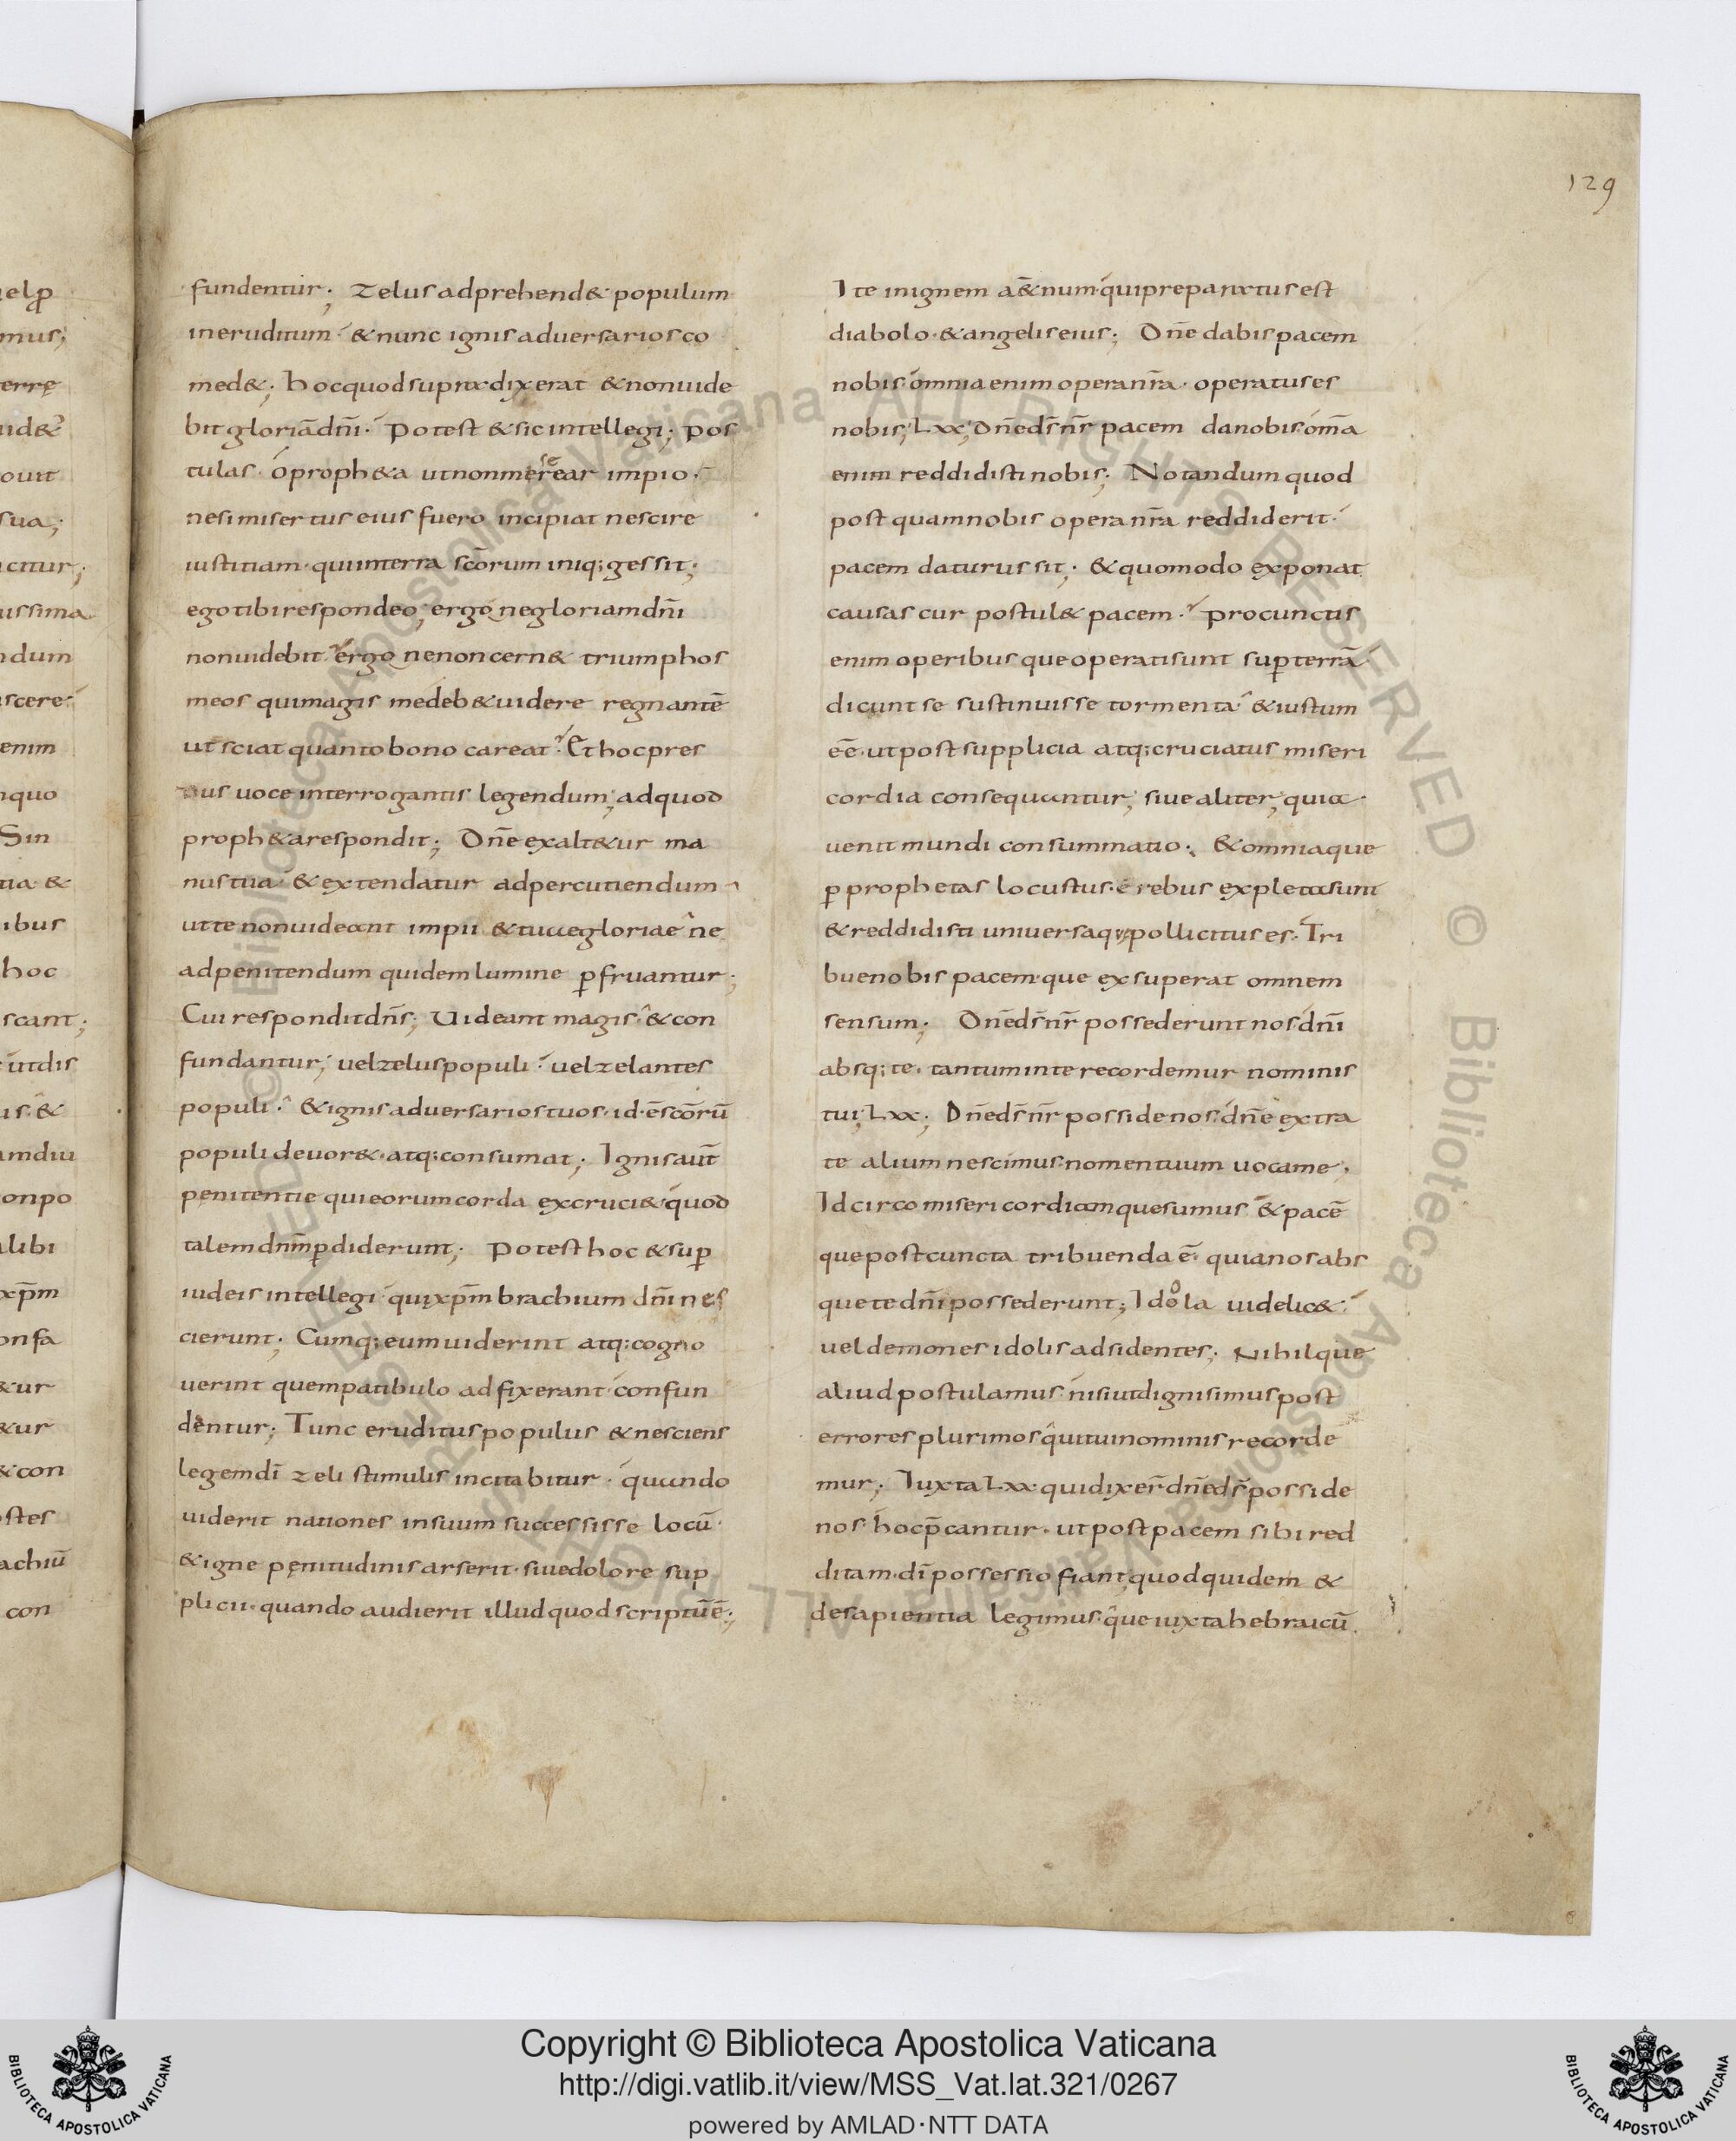 129
fundentur; zelus adprehend& populum
ineruditum & nunc ignis adversarios co
med&; hoc quod supra dixerat & non uide
bit gloriā dn̄i. Potest & sic intellegi; Pos
tulas o proph&a ut non merear impio.
ne si misertus eius fuero incipiat nescire
iustitiam. qui in terra sc̄orum iniq; gessit;
ego tibi respondeo; ergo ne gloriam dn̄i
non uidebit ergo ne non cern& triumphos
meos qui magis me deb& uidere regnantē
ut sciat quanto bono careat. Et hoc pres
sius uoce interrogantis legendum; ad quod
proph&a respondit; Dn̄e exalt&ur ma
nus tua & extendatur ad percutiendum
ut te non uideant impii & tuae gloriae ne
ad penitendum quidem lumine ꝑfruantur;
Cui respondit dn̄s; Uideant magis & con
fundantur; uel zelus populi uel zelantes
populi. & ignis adversarios tuos. id. ē sc̄orū
populi deuor& atq; consumat; Ignis aut̄
penitentie qui eorum corda excruci& quod
talem dn̄m ꝑdiderunt; Potest hoc & suꝑ
iudeis intellegi qui xp̄m brachium dn̄i nes
cierunt; Cumq; eum uiderint atq; cogno
uerint quem patibulo adfixerant confun
dentur; Tunc eruditus populus & nesciens
legem dī zeli stimulis incitabitur. quando
uiderit nationes in suum successisse locū.
& igne penitudinis arserit. siue dolore sup
plicii. quando audierit illud quod scriptū ē;
Ite in ignem aet̄num qui preparatus est
diabolo. & angelis eius; Dn̄e dabis pacem
nobis omnia enim opera nr̄a. operatus es
nobis; Lxx; dn̄e ds̄ nr̄ pacem da nobis om̄a
enim reddidisti nobis; Notandum quod
postquam nobis opera nr̄a reddiderit
pacem daturus sit; & quomodo exponat
causas cur postul& pacem. Pro cunctis
enim operibus que operati sunt suꝑ terrā
dicunt se sustinuisse tormenta & iustum
eē. ut post supplicia atq; cruciatus miseri
cordia consequantur; siue aliter; quia
uenit mundi consummatio; & omnia que
ꝑ prophetas locustus. ē rebus expleta sunt
& reddidisti universa que pollicitus es. Tri
bue nobis pacem. que exsuperat omnem
sensum; Dn̄e ds̄ nr̄ possederunt nos dn̄i
absq; te. tantum in te recordemur nominis
tui; Lxx; Dn̄e ds̄ nr̄ posside nos. dn̄e extra
te alium nescimus. nomen tuum uocame.
Idcirco misericordiam quesumus & pacē
que post cuncta tribuenda ē. quia nos abs
que te dn̄i possederunt; Idola uidelic&
uel demones idolis adsidentes; Nihilque
aliud postulamus nisi ut digni simus post
errores plurimos qui tui nominis recorde
mur; Iuxta Lxx qui dixer̄ dn̄e ds̄ posside
nos. hoc p̄cantur. ut post pacem sibi red
ditam. dī possessio fiant quod quidem &
de sapientia legimus. que iuxta hebraicū
Copyright © Biblioteca Apostolica Vaticana
http://digi.vatlib.it/view/MSS_Vat.lat.321/0267
powered by AMLAD·NTT DATA
BIBLIOTECA APOSTOLICA VATICANA
BIBLIOTECA APOSTOLICA VATICANA